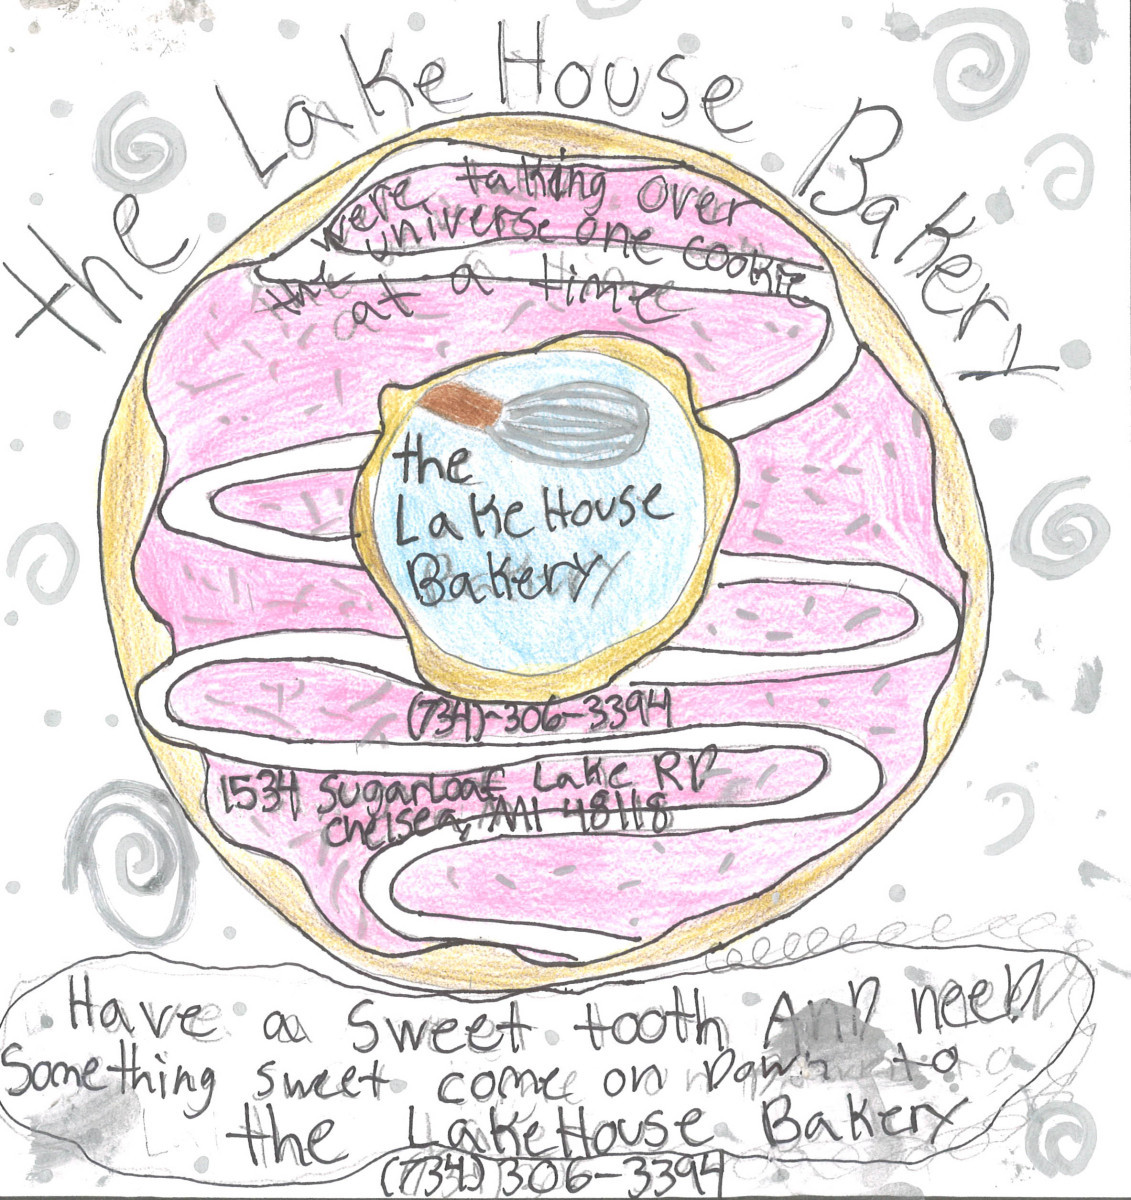 the LakeHouse Bakery
were talking over
the universe one cookie
at a time
the
LakeHouse
Bakery
(734)-306-3394
1534 Sugarloaf Lake RD
chelsea, MI 48118
Have a sweet tooth AnD neeD
Something sweet come on Down to
the LakeHouse Bakery
(734) 306-3394